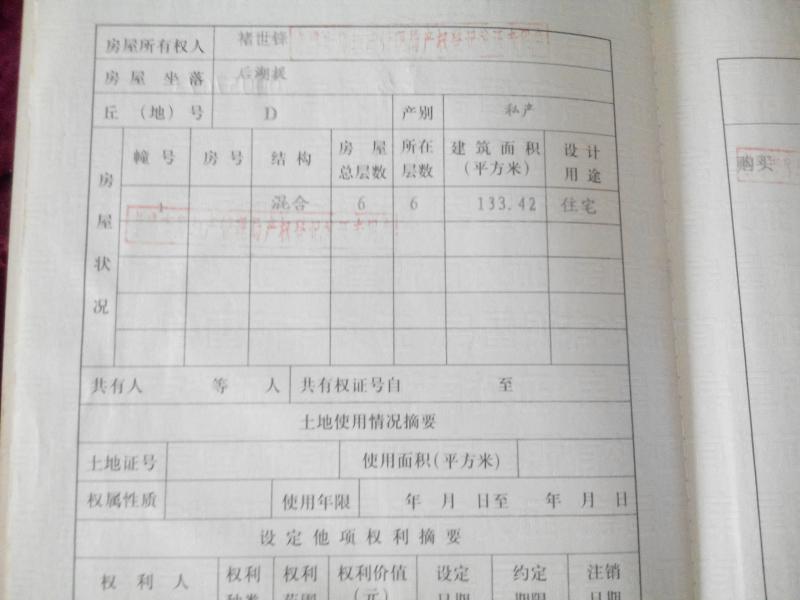 房屋所有权人 褚世锋
房屋坐落 后湖
丘（地）号 D 产别 私产
房屋状况
幢号 房号 结构 房屋总层数 所在层数 建筑面积(平方米) 设计用途
1 混合 6 6 133.42 住宅
共有人 等 人 共有权证号自 至
土地使用情况摘要
土地证号 使用面积(平方米)
权属性质 使用年限 年 月 日至 年 月 日
设定他项权利摘要
权利人 权利种类 权利范围 权利价值(元) 设定日期 约定期限 注销日期
购买